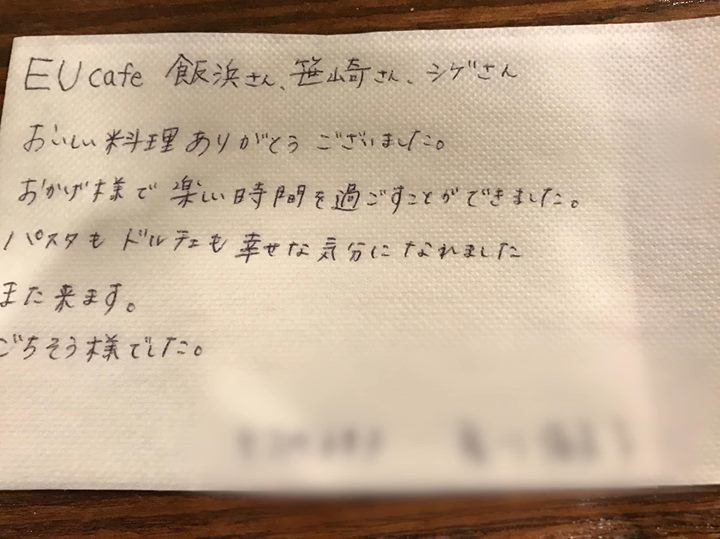 EU cafe 飯浜さん、笹崎さん、シゲさん
おいしい料理ありがとうございました。
おかげ様で楽しい時間を過ごすことができました。
パスタもドルチェも幸せな気分になれました
また来ます。
ごちそう様でした。